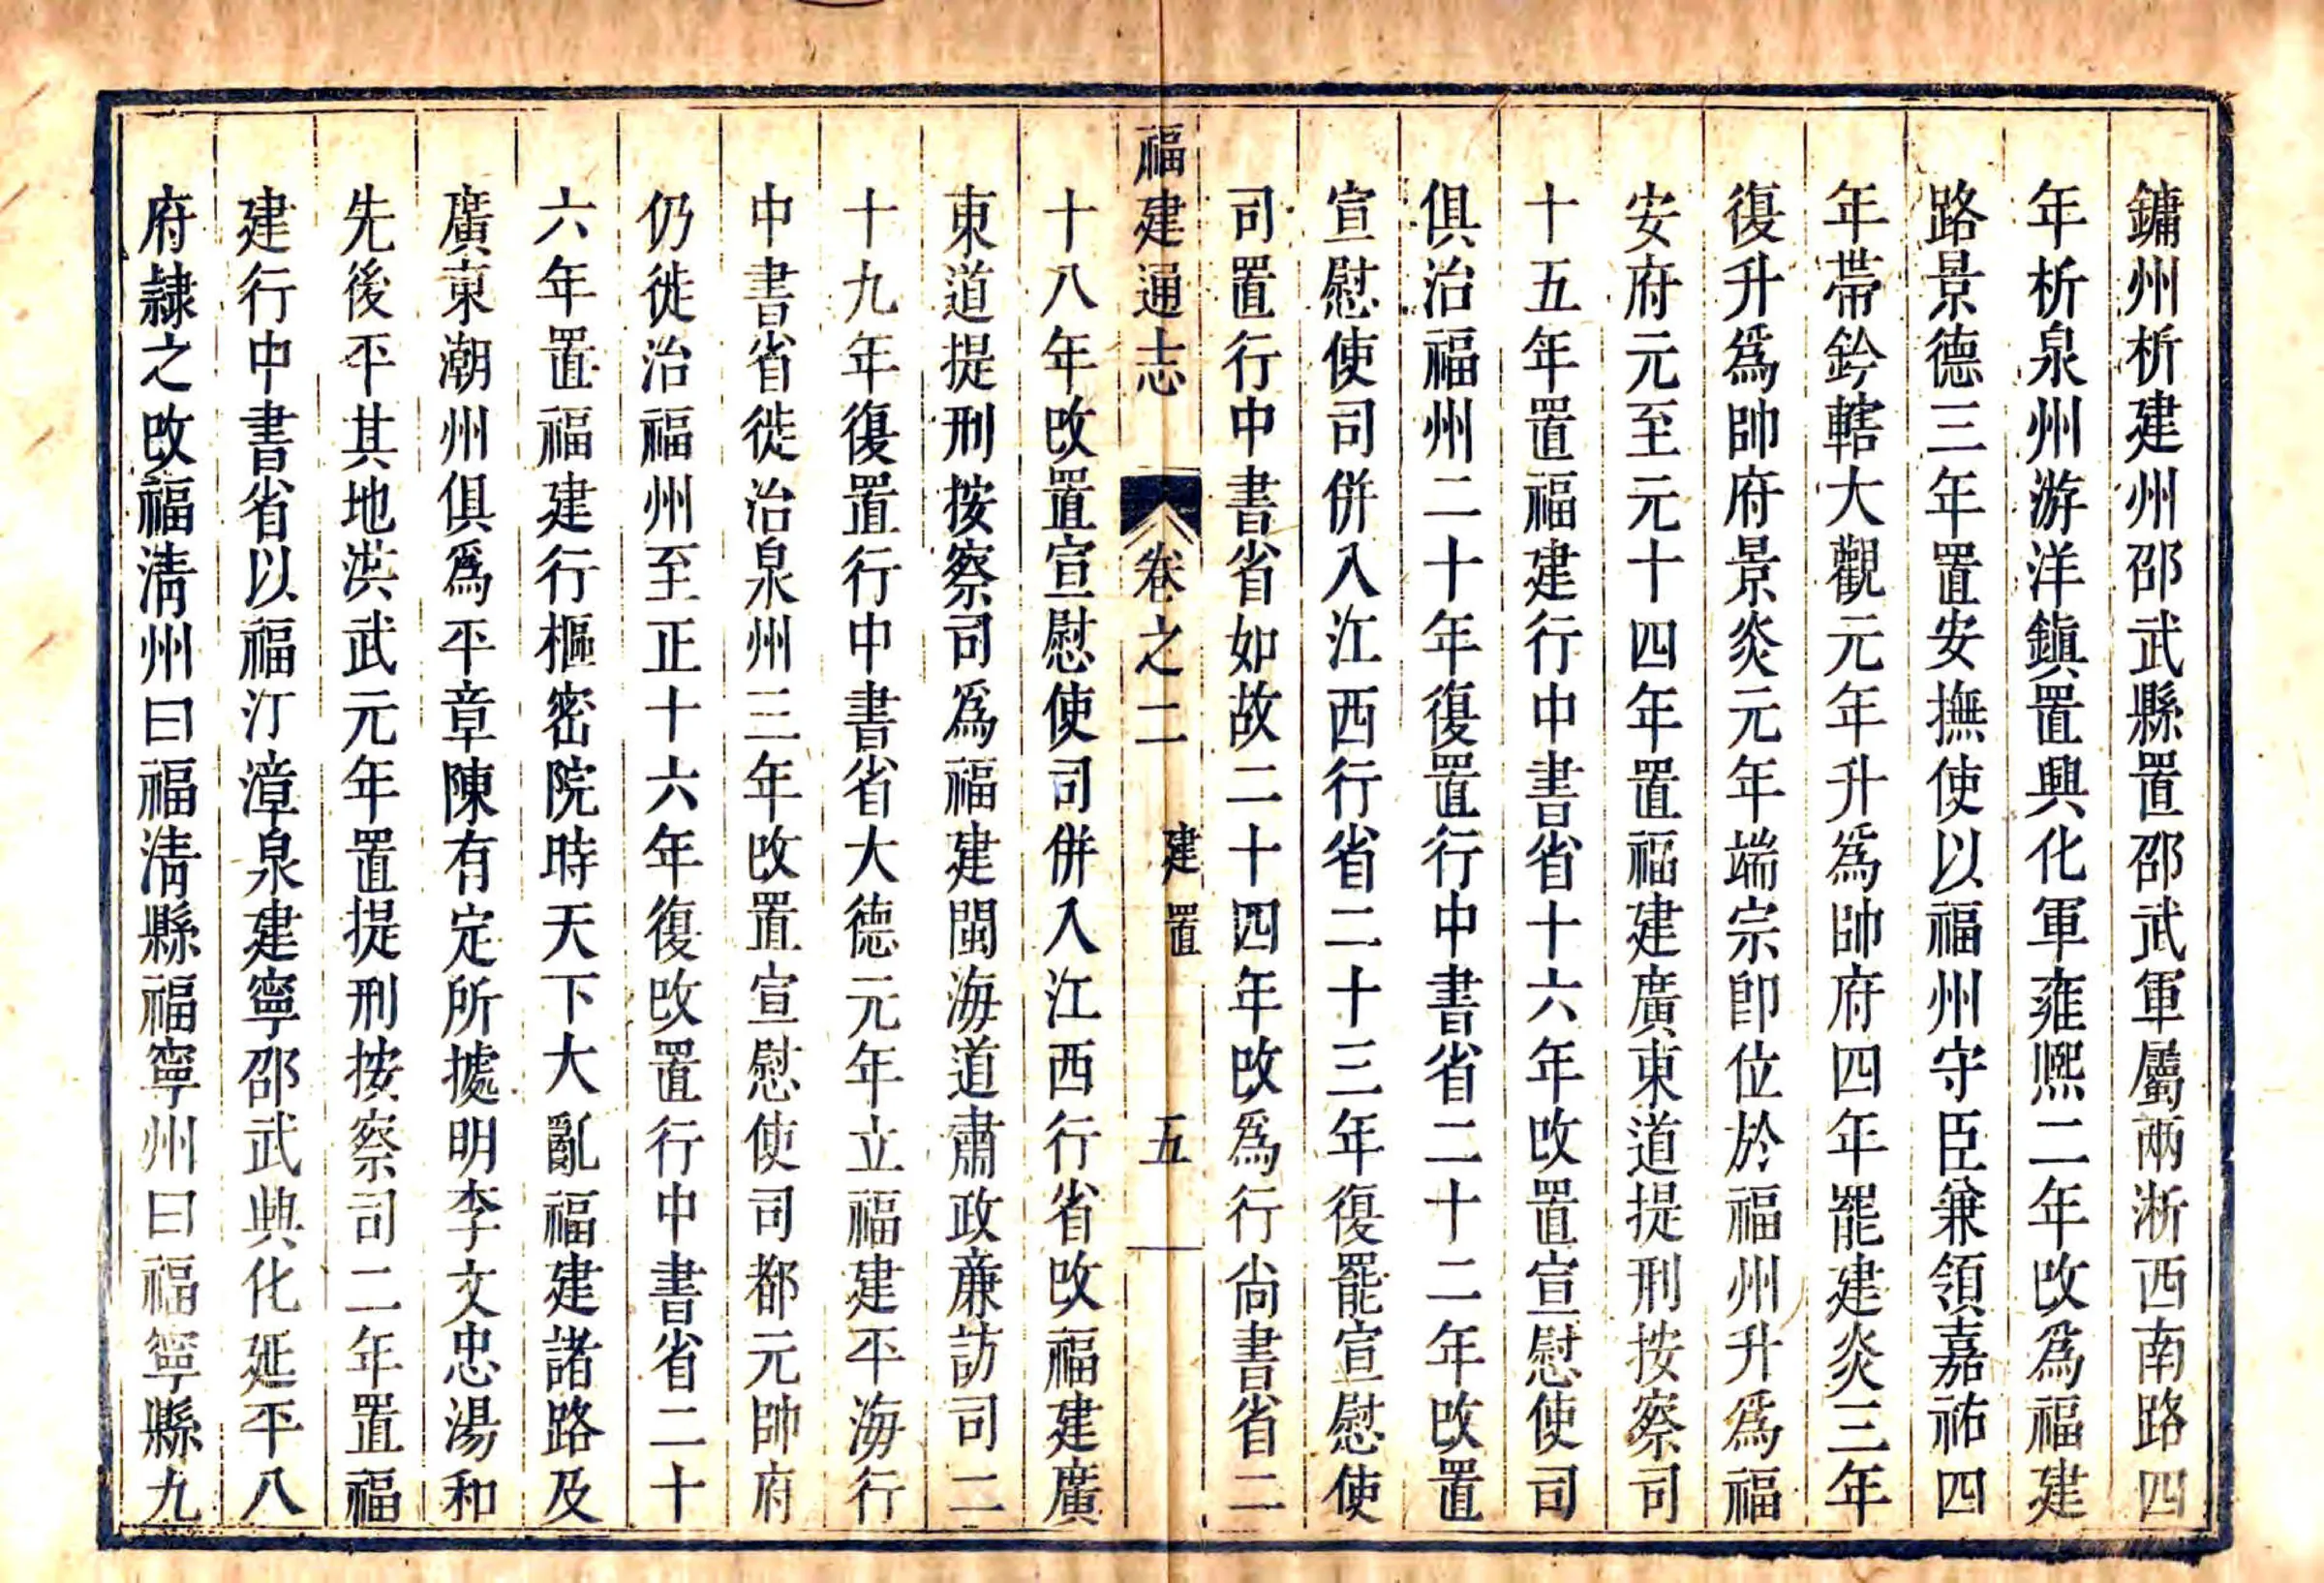 鏞州析建州邵武縣置邵武軍屬兩浙西南路四
年析泉州游洋鎮置興化軍雍熙二年改爲福建
路景德三年置安撫使以福州守臣兼領嘉祐四
年帶鈐轄大觀元年升爲帥府四年罷建炎三年
復升爲帥府景炎元年端宗卽位於福州升爲福
安府元至元十四年置福建廣東道提刑按察司
十五年置福建行中書省十六年改置宣慰使司
俱治福州二十年復置行中書省二十二年改置
宣慰使司併入江西行省二十三年復罷宣慰使
司置行中書省如故二十四年改爲行尚書省二
福建通志 卷之二 建置 五
十八年改置宣慰使司併入江西行省改福建廣
東道提刑按察司爲福建閩海道肅政廉訪司二
十九年復置行中書省大德元年立福建平海行
中書省徙治泉州三年改置宣慰使司都元帥府
仍徙治福州至正十六年復改置行中書省二十
六年置福建行樞密院時天下大亂福建諸路及
廣東潮州俱爲平章陳有定所據明李文忠湯和
先後平其地洪武元年置提刑按察司二年置福
建行中書省以福汀漳泉建寧邵武興化延平八
府隸之改福清州曰福清縣福寧州曰福寧縣九